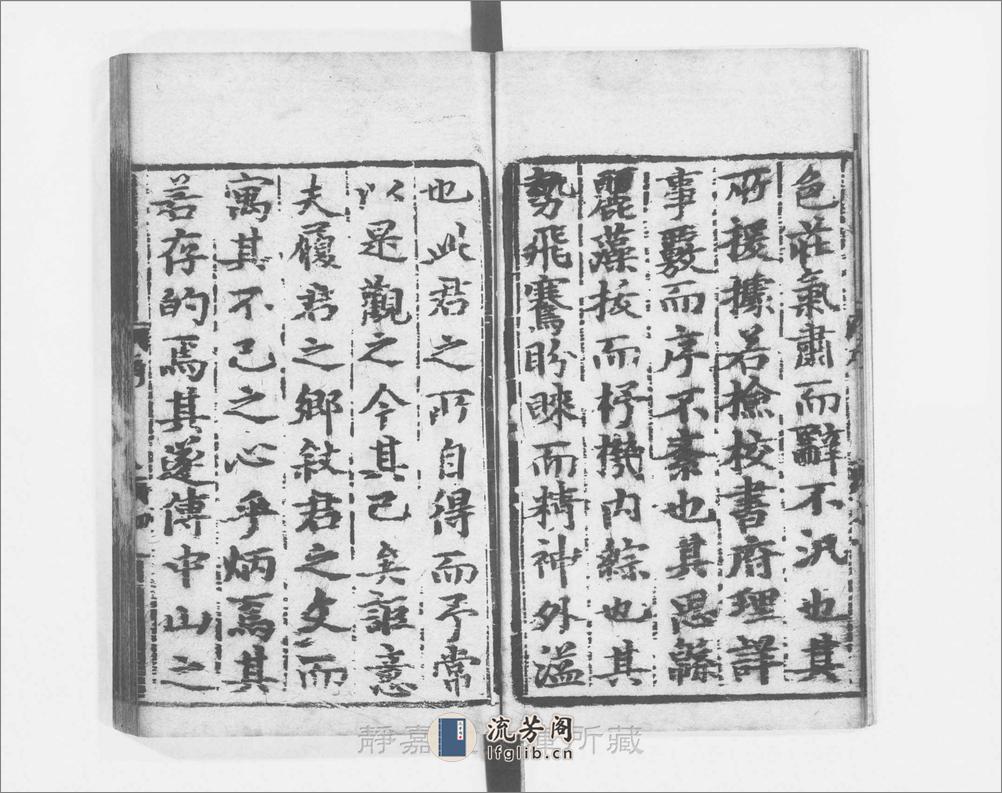 色莊氣肅而辭不汎也其
所援據若檢校書府理詳
事覈而序不紊也其思繇
麗藻接而杼機内綜也其
勢飛騫盼睞而精神外溢
也此君之所自得而予常
以是觀之今其已矣詎意
夫履君之鄉敍君之文而
寓其不已之心乎炳焉其
若存的焉其遂傳中山之
靜嘉 所藏
流芳阁
lfglib.cn